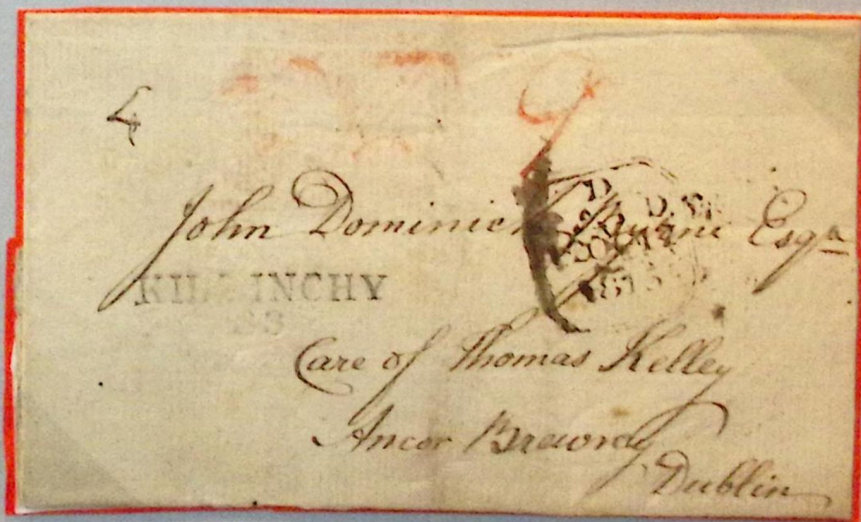 4
9
John Dominick Esqr
KILLINCHY
83
Care of Thomas Kelley
Ancor Brewrey
Dublin